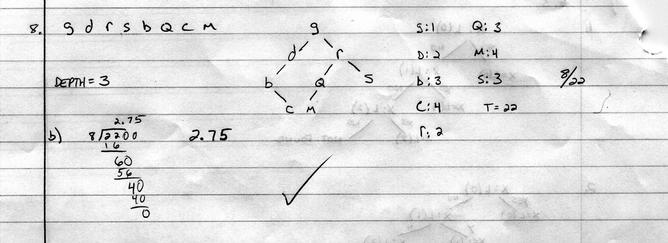 8. g d r s b Q C M
g
d r
b Q S
C M
DEPTH = 3
S:1 Q:3
D:2 M:4
b:3 S:3 8/22
C:4 T=22
r:2
b) 2.75
8/2200 2.75
16
60
56
40
40
0